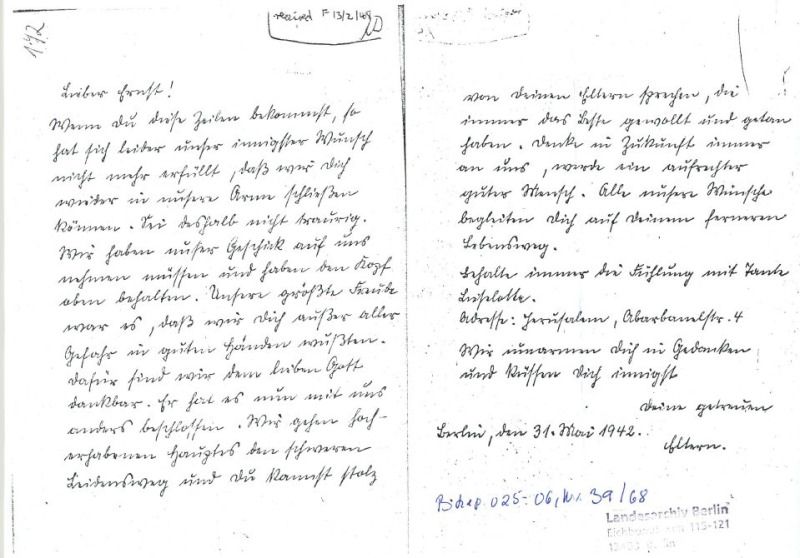 172
received F 13/2/48
Lieber Ernst!
Wenn Du diese Zeilen bekommst, so
hat sich leider unser innigster Wunsch
nicht mehr erfüllt, daß wir Dich
wieder in unsere Arme schließen
können. Sei deshalb nicht traurig.
Wir haben unser Geschick auf uns
nehmen müssen und haben den Kopf
oben behalten. Unsere größte Freude
war es, daß wir Dich außer aller
Gefahr in guten Händen wußten.
Dafür sind wir dem lieben Gott
dankbar. Er hat es nun mit uns
anders beschlossen. Wir gehen hoch-
erhabenen Hauptes den schweren
Leidensweg und Du kannst stolz
von Deinen Eltern sprechen, die
immer das Beste gewollt und getan
haben. Denke in Zukunft immer
an uns, werde ein aufrechter
guter Mensch. Alle unsere Wünsche
begleiten Dich auf Deinem ferneren
Lebensweg.
Behalte immer die Fühlung mit Tante
Liselotte.
Adresse: Jerusalem, Abarbanelstr. 4
Wir umarmen Dich in Gedanken
und küssen Dich innigst
Deine getreuen
Berlin, den 31. Mai 1942.
Eltern.
025-06, Nr. 39/68
Landesarchiv Berlin
115-121